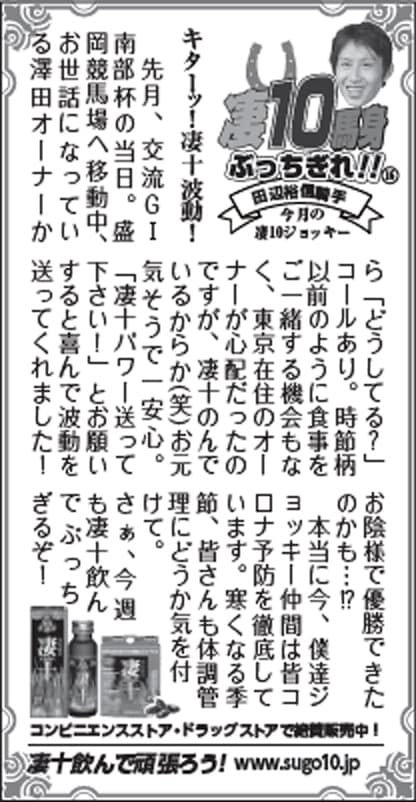 凄10馬身
ぶっちぎれ!!⑯
田辺裕信騎手
今月の
凄10ジョッキー
キターッ!凄十波動!
先月、交流GⅠ
南部杯の当日。盛
岡競馬場へ移動中、
お世話になってい
る澤田オーナーか
ら「どうしてる?」
コールあり。時節柄
以前のように食事を
ご一緒する機会もな
く、東京在住のオー
ナーが心配だったの
ですが、凄十のんで
いるからか(笑)お元
気そうで一安心。
「凄十パワー送って
下さい!」とお願い
すると喜んで波動を
送ってくれました!
お陰様で優勝できた
のかも…!?
本当に今、僕達ジ
ョッキー仲間は皆コ
ロナ予防を徹底して
います。寒くなる季
節、皆さんも体調管
理にどうか気を付
けて。
さぁ、今週
も凄十飲ん
でぶっち
ぎるぞ!
凄十
凄十
凄十
コンビニエンスストア・ドラッグストアで絶賛販売中!
凄十飲んで頑張ろう! www.sugo10.jp